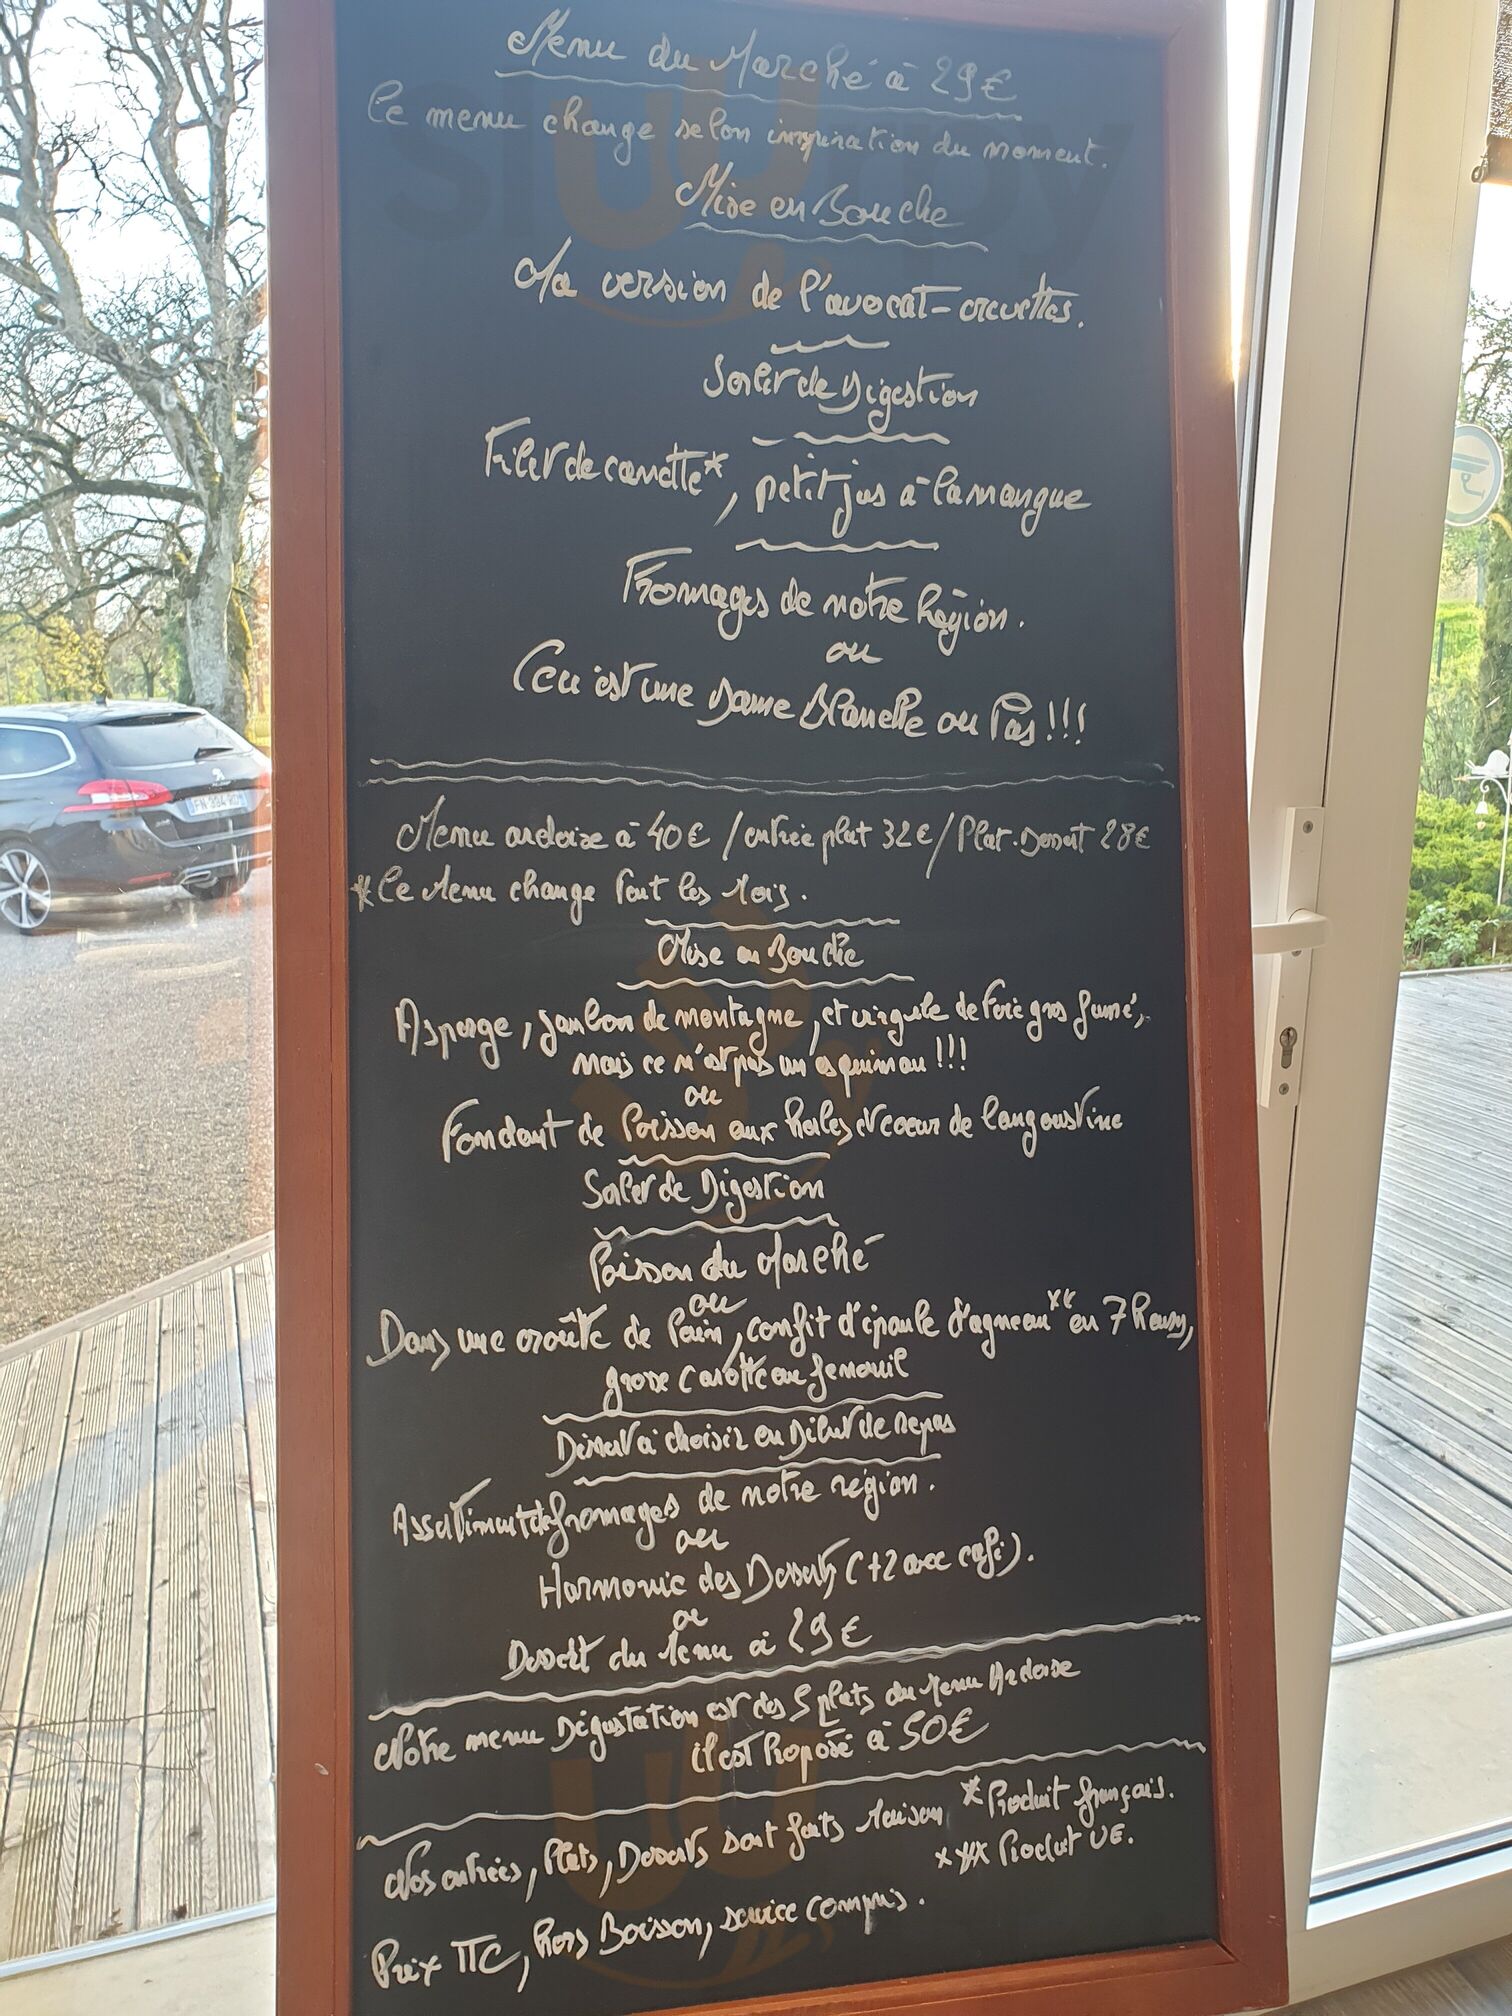 Menu du Marché à 29€
Ce menu change selon inspiration du moment.
Mise en Bouche
Ma version de l'avocat-crevettes.
de Digestion
Filet de canette*, petit jus à la mangue
Fromages de notre Région.
ou
Ceci est une Dame Blanche ou Pas!!!
Menu ardoise à 40€ / entrée plat 32€ / Plat-Dessert 28€
*Ce Menu change tout les Mois.
Mise en Bouche
Asperge, jambon de montagne, et virgule de foie gras fumé,
mais ce n'est pas un esquimau!!!
ou
Fondant de Poisson aux herbes et coeur de langoustine
de Digestion
Poisson du Marché
ou
Dans une croûte de Pain, confit d'épaule d'agneau** en 7 heures,
grosse carotte au fenouil
Dessert à choisir en Début de repas
Assortiment de fromages de notre région.
ou
Harmonie des Desserts (+2 avec café).
ou
Dessert du Menu à 29€
Notre menu Dégustation est des 5 plats du Menu Ardoise
il est Proposé à 50€
Nos entrées, Plats, Desserts sont faits Maison
*Produit français.
*** Produit UE.
Prix TTC, hors Boisson, service compris.
sluurpy
FN-394